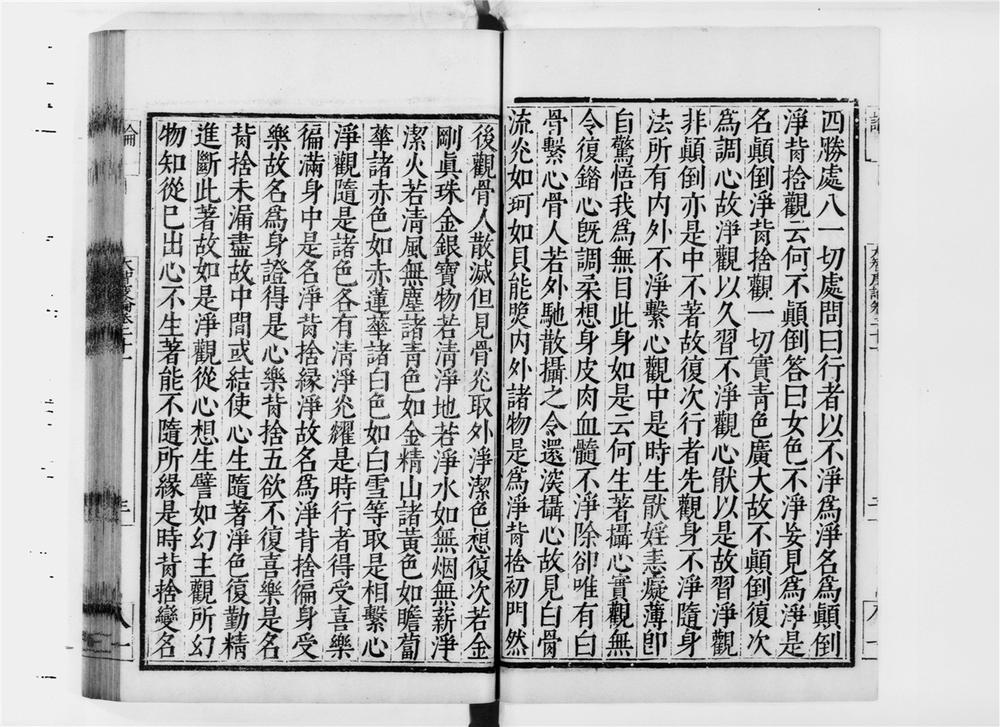 四勝處八一切處問曰行者以不淨爲淨名爲顚倒
淨背捨觀云何不顚倒答曰女色不淨妄見爲淨是
名顚倒淨背捨觀一切實靑色廣大故不顚倒復次
爲調心故淨觀以久習不淨觀心猒以是故習淨觀
非顚倒亦是中不著故復次行者先觀身不淨隨身
法所有内外不淨繫心觀中是時生猒婬恚癡薄卽
自驚悟我爲無目此身如是云何生著攝心實觀無
令復錯心旣調柔想身皮肉血髓不淨除卻唯有白
骨繫心骨人若外馳散攝之令還深攝心故見白骨
流光如珂如貝能照内外諸物是爲淨背捨初門然
後觀骨人散滅但見骨光取外淨潔色想復次若金
剛眞珠金銀寶物若淸淨地若淨水如無烟無薪淨
潔火若淸風無塵諸靑色如金精山諸黃色如瞻蔔
華諸赤色如赤蓮華諸白色如白雪等取是相繫心
淨觀隨是諸色各有淸淨光耀是時行者得受喜樂
徧滿身中是名淨背捨緣淨故名爲淨背捨徧身受
樂故名爲身證得是心樂背捨五欲不復喜樂是名
背捨未漏盡故中間或結使心生隨著淨色復勤精
進斷此著故如是淨觀從心想生譬如幻主觀所幻
物知從巳出心不生著能不隨所緣是時背捨變名